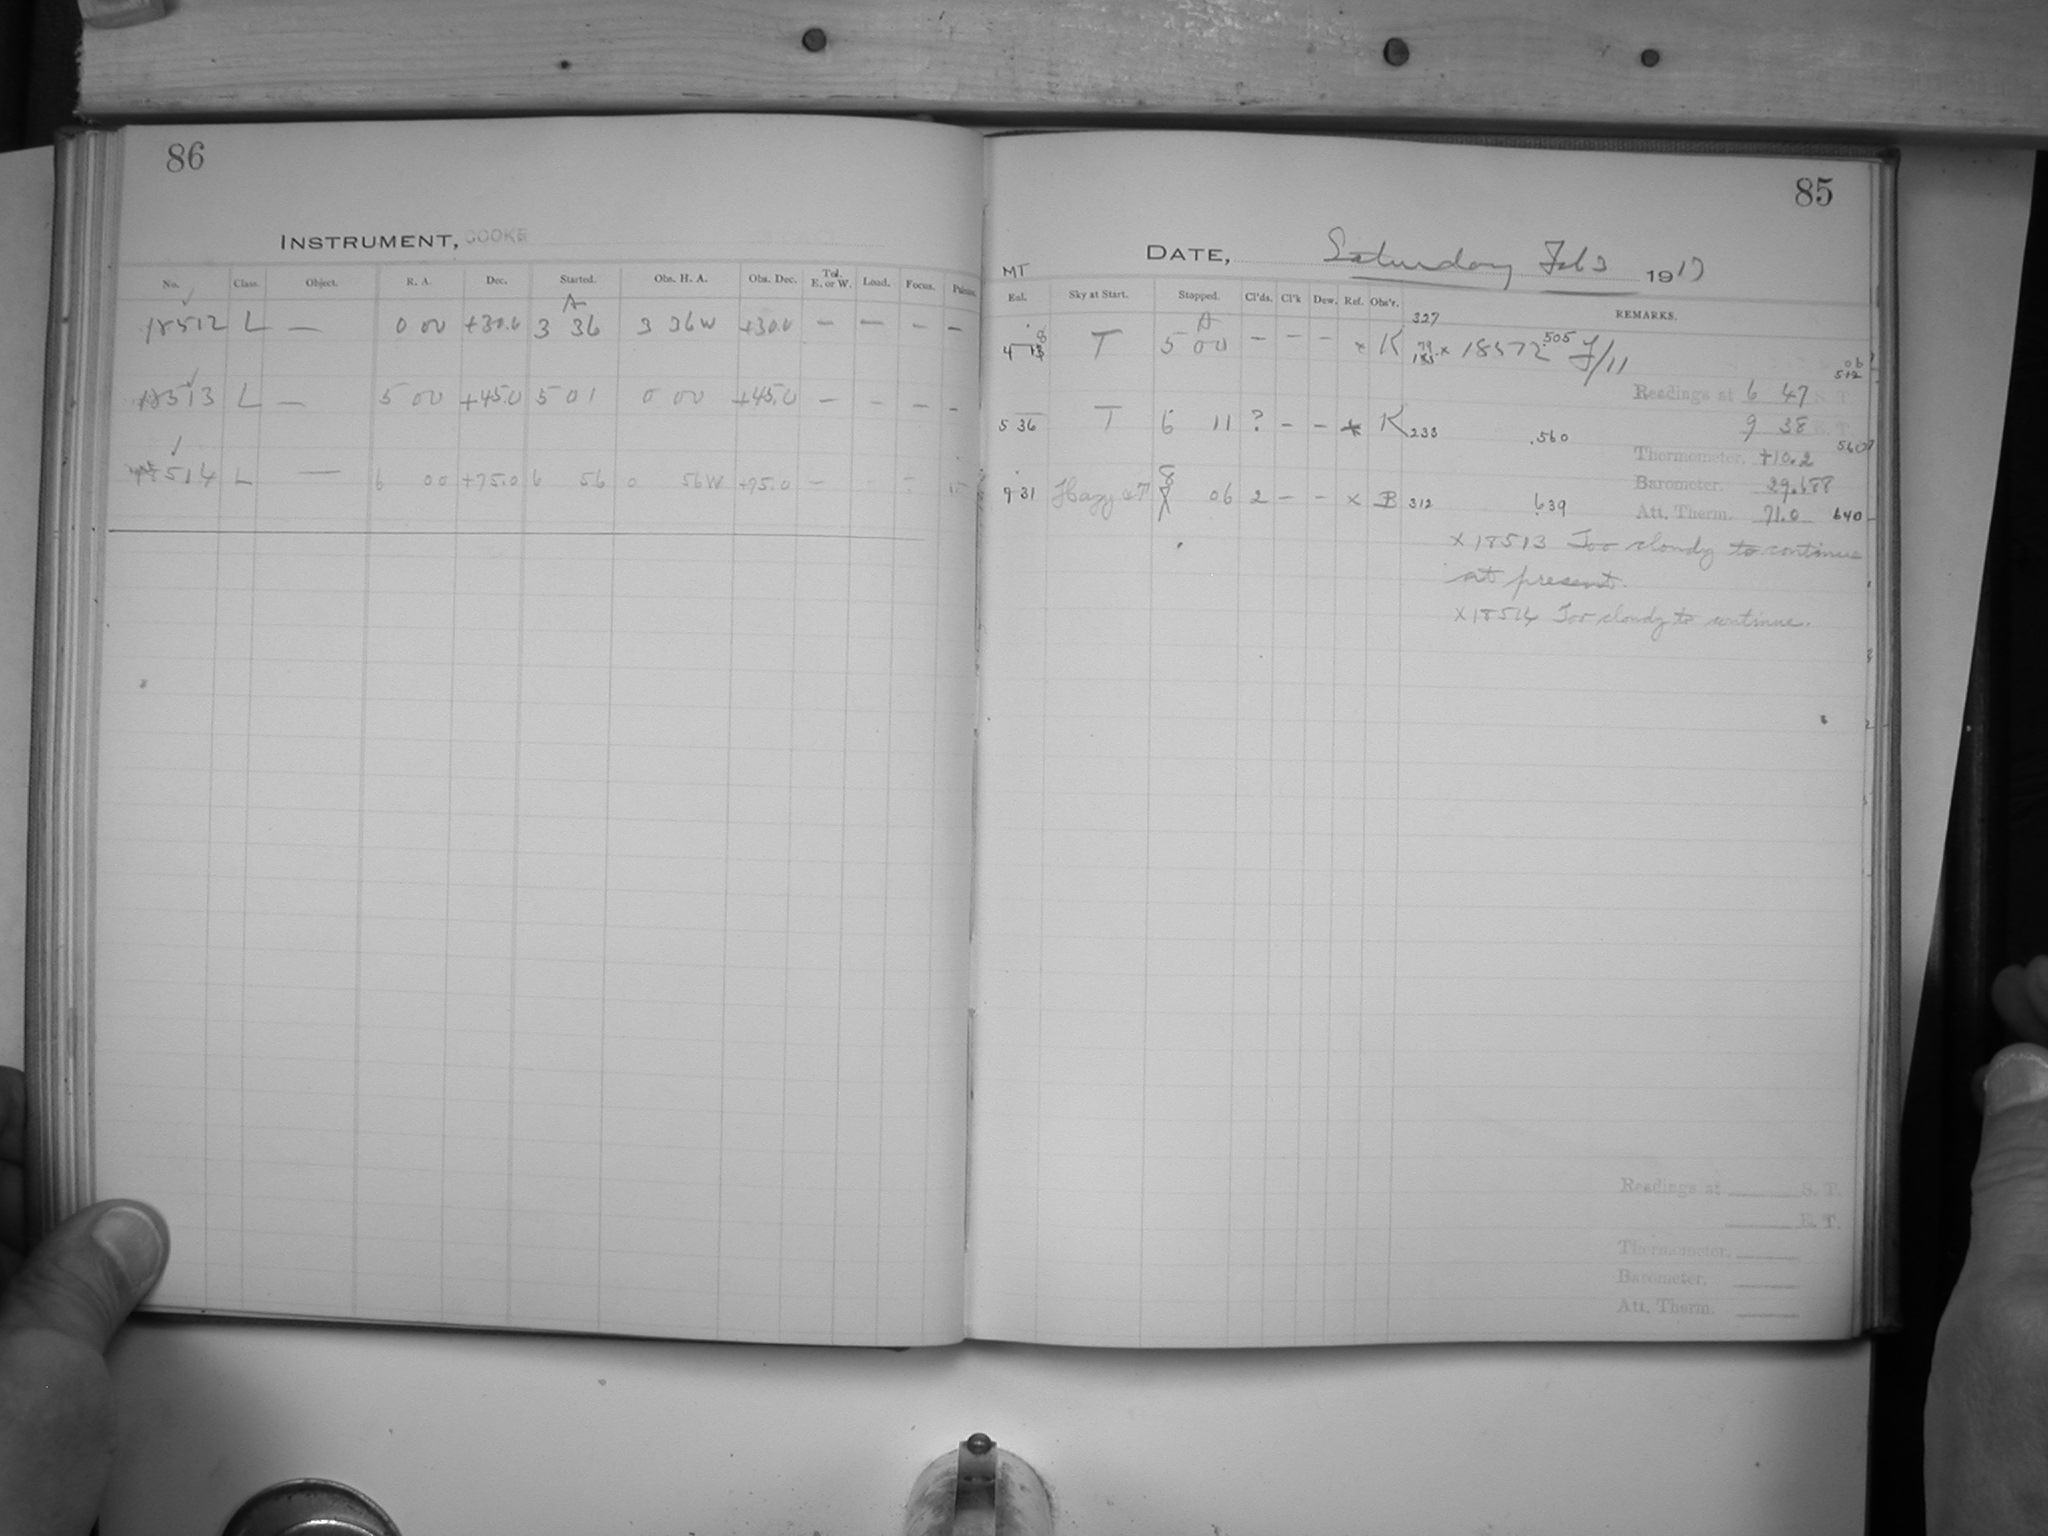 86
INSTRUMENT, COOKE
No. Class. Object. R. A. Dec. Started. Obs. H. A. Obs. Dec. Tel. E. or W. Load. Focus.
A
18512 L — 0 00 +30.0 3 36 3 36W +30.0 — — — —
18513 L — 5 00 +45.0 5 01 0 00 +45.0 — - — -
18514 L — 6 00 +75.0 6 56 0 56W +75.0 —
85
DATE, Saturday Feb 3 1917
MT
Eal. Sky at Start. Stopped. Cl'ds. Cl'k Dew. Ref. Obs'r. REMARKS.
327
A
T 5 00 - - - × K × 18572 .505 F/11
Readings at 6 47 S. T.
5 36 T 6 11 ? - - × K 233 .560
9 38 E. T.
Thermometer. +10.2
Barometer. 29.688
9 31 Hazy 06 2 - - × B 312 639
Att. Therm. 71.0 640
×18513 Too cloudy to continue
at present.
×18514 Too cloudy to continue.
Readings at S. T.
E. T.
Thermometer.
Barometer.
Att. Therm.